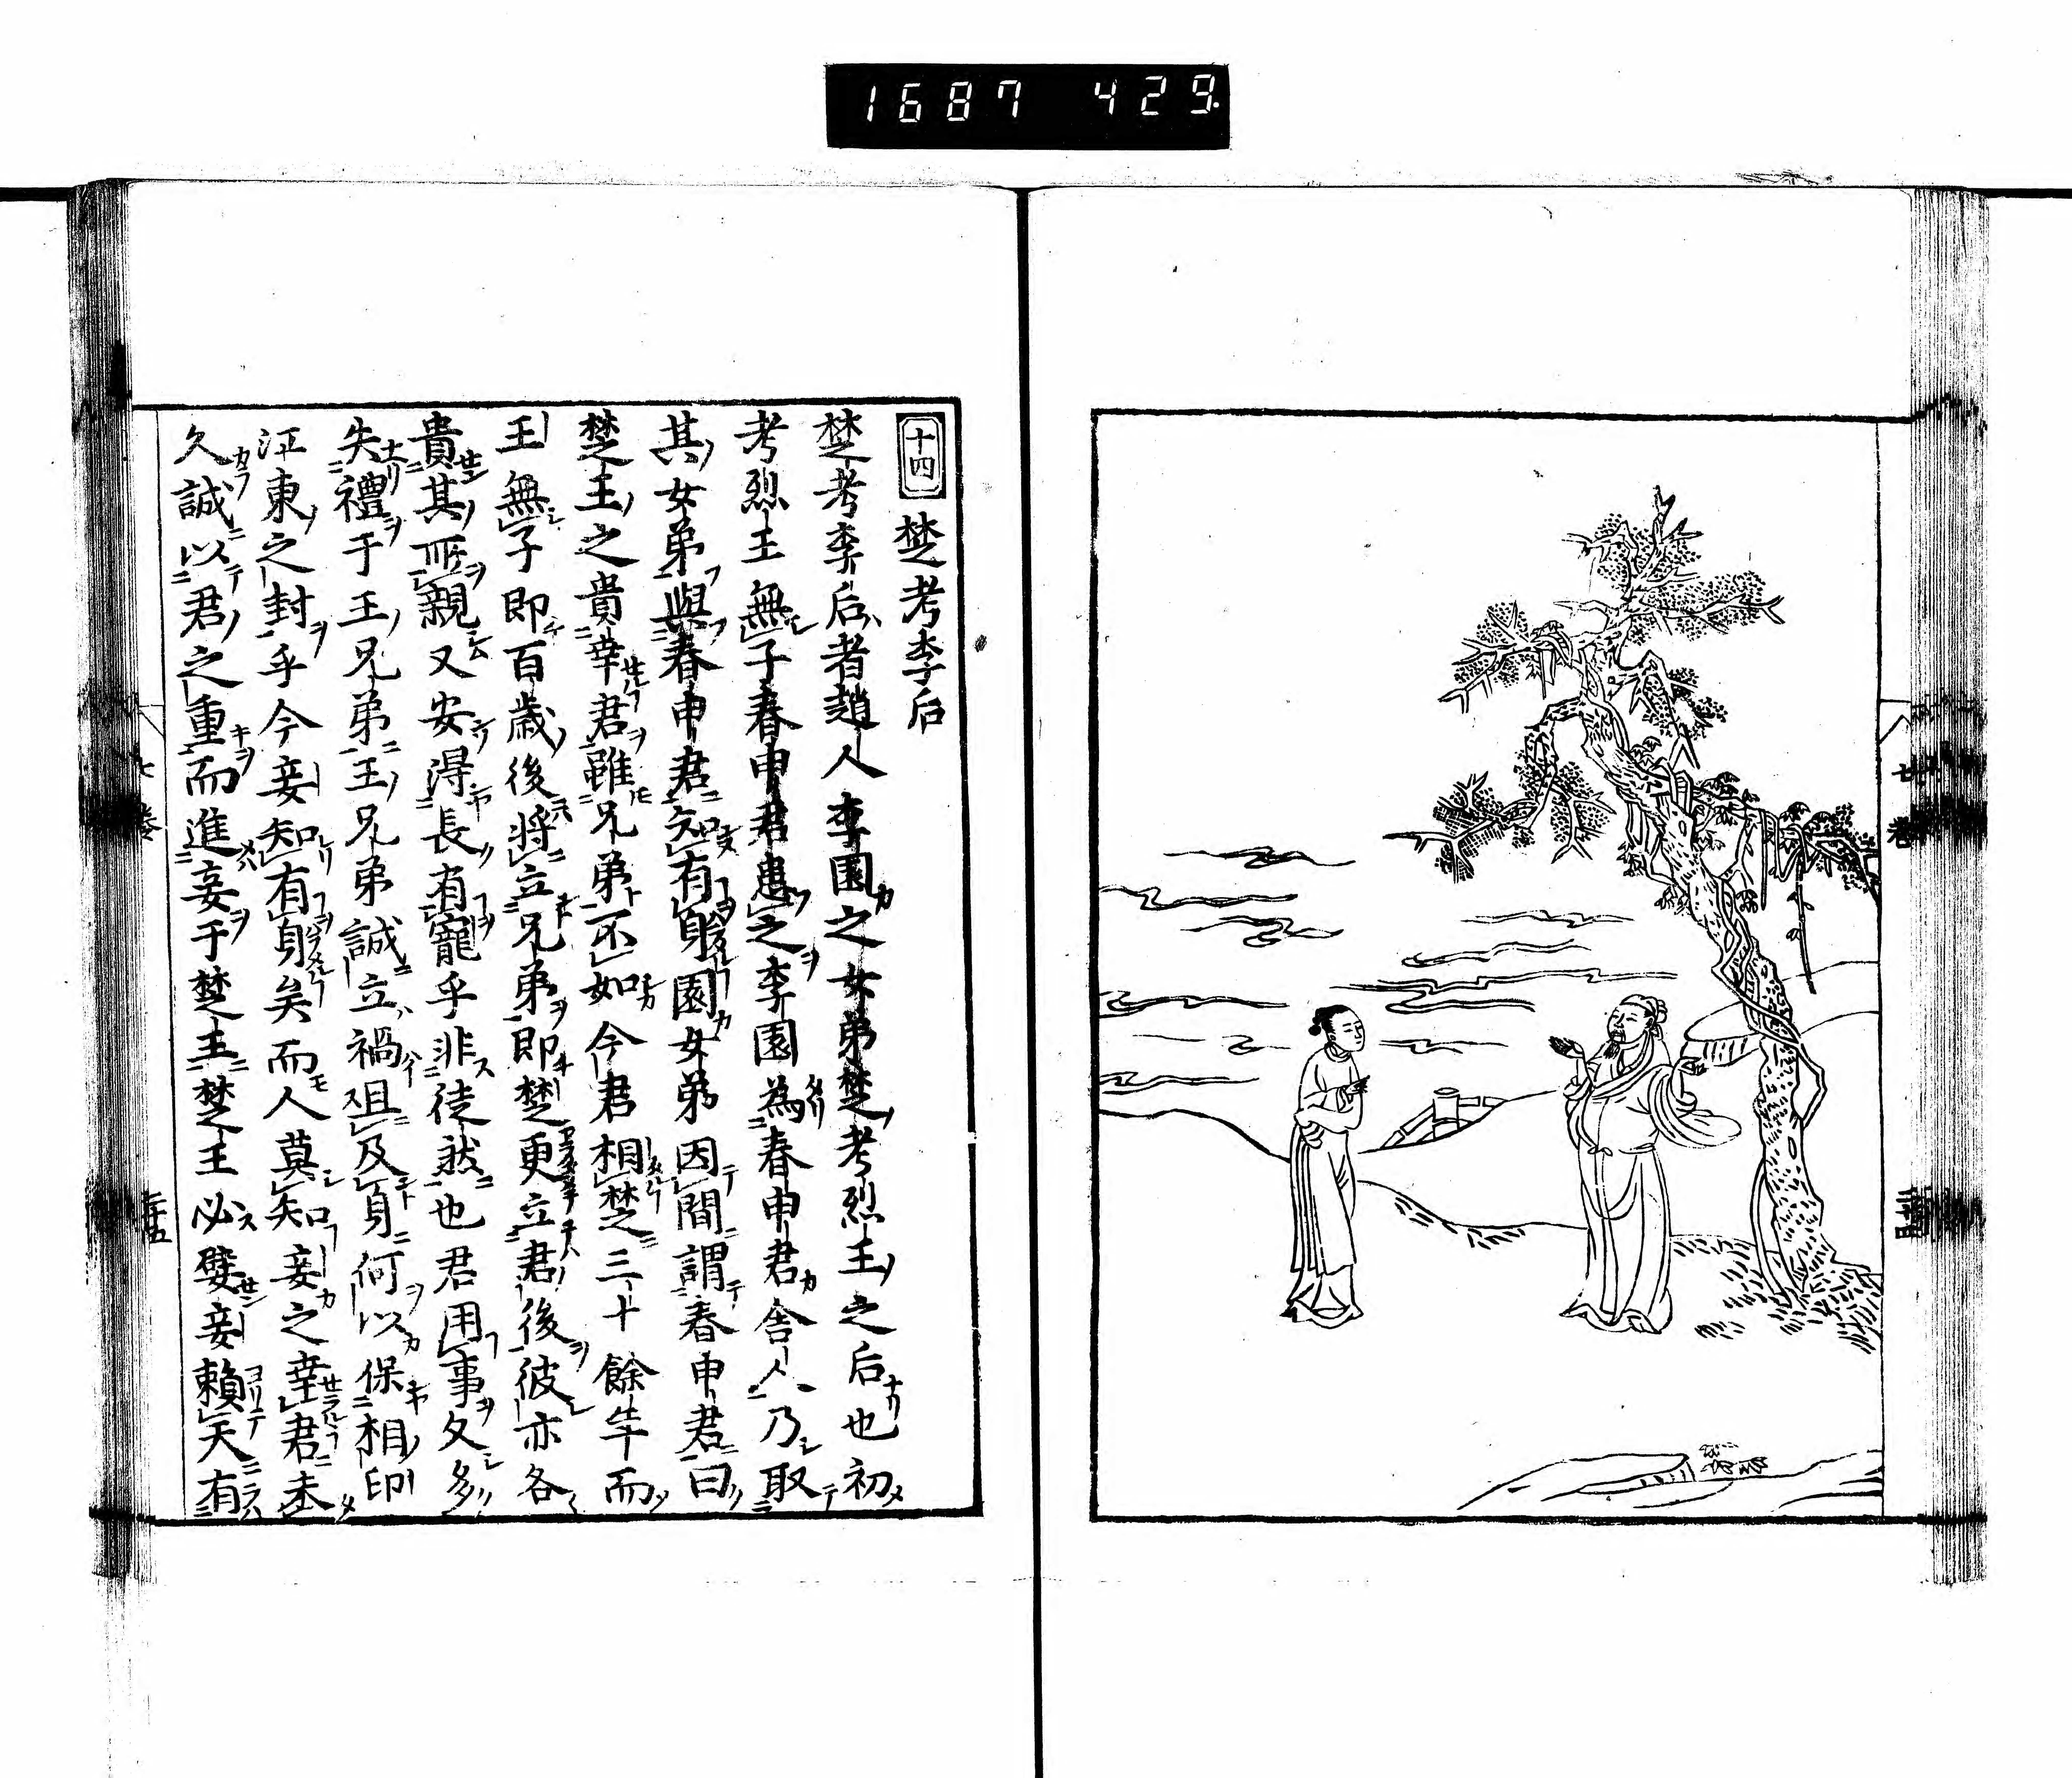 1687 429
七 巻
二十四
十四 楚考李后
楚考李后者趙人李園之女弟楚考烈王之后也初
考烈王無子春申君患之李園為春申君舎人乃取
其女弟與春申君知有身園女弟因間謂春申君曰
楚王之貴幸君雖兄弟不如今君相楚三十餘年而
王無子即百歳後将立兄弟即楚更立君後彼亦各
貴其所親又安得長有寵乎非徒然也君用事久多
失禮于王兄弟王兄弟誠立禍且及身何以保相印
江東之封乎今妾知有身矣而人莫知妾之幸君未
久誠以君之重而進妾于楚王楚王必嬖妾頼天有
七 巻
二十五